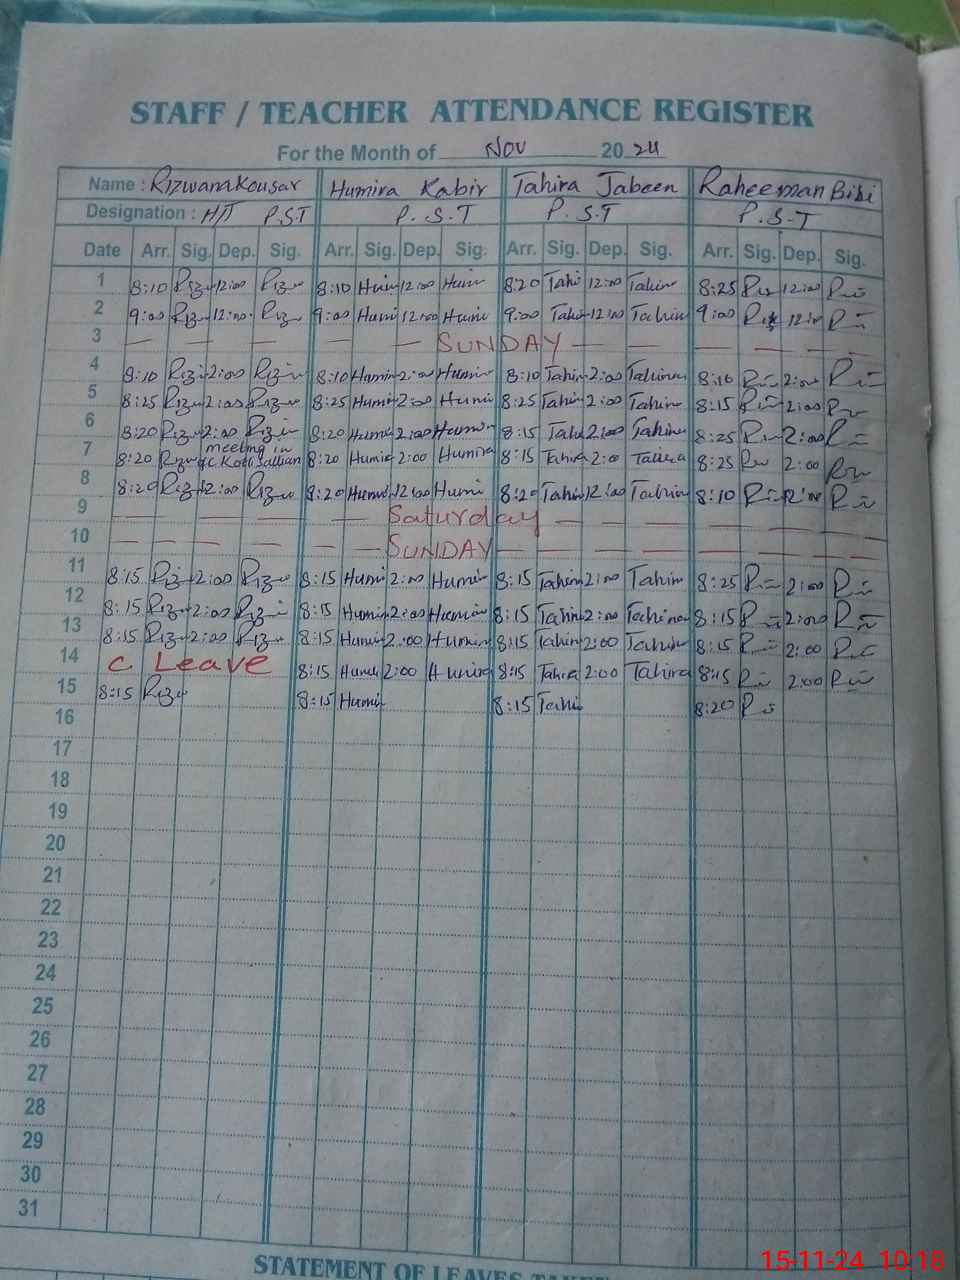 STAFF / TEACHER ATTENDANCE REGISTER
For the Month of Nov 2024
Name : Rizwana Kousar Humira Kabir Tahira Jabeen Raheeman Bibi
Designation : H/T P.S.T P.S.T P.S.T P.S.T
Date Arr. Sig. Dep. Sig. Arr. Sig. Dep. Sig. Arr. Sig. Dep. Sig. Arr. Sig. Dep. Sig.
1 8:10 12:00 8:10 Humi 12:00 Humi 8:20 Tahi 12:00 Tahira 8:25 12:00
2 9:00 12:00 9:00 Humi 12:00 Humi 9:00 Tahi 12:00 Tahira 9:00 12:00
3 SUNDAY
4 8:10 2:00 8:10 Humira 2:00 Humira 8:10 Tahira 2:00 Tahira 8:10 2:00
5 8:25 2:00 8:25 Humi 2:00 Humi 8:25 Tahira 2:00 Tahira 8:15 2:00
6 8:20 2:00 8:20 Humi 2:00 Humira 8:15 2:00 Tahira 8:25 2:00
7 8:20 meeting in 8:20 Humira 2:00 Humira 8:15 Tahira 2:00 Tahira 8:25 2:00
8 8:20 12:00 8:20 Humi 12:00 Humi 8:20 Tahira 12:00 Tahira 8:10 12:00
9 Saturday
10 SUNDAY
11 8:15 2:00 8:15 Humi 2:00 Humira 8:15 Tahira 2:00 Tahira 8:25 2:00
12 8:15 2:00 8:15 Humira 2:00 Humira 8:15 Tahira 2:00 Tahira 8:15 2:00
13 8:15 2:00 8:15 Humira 2:00 Humira 8:15 Tahira 2:00 Tahira 8:15 2:00
14 C. Leave 8:15 Humi 2:00 Humira 8:15 Tahira 2:00 Tahira 8:15 2:00
15 8:15 8:15 Humi 8:15 Tahi 8:20
16
17
18
19
20
21
22
23
24
25
26
27
28
29
30
31
STATEMENT OF LEAVES TAKEN
15-11-24 10:18